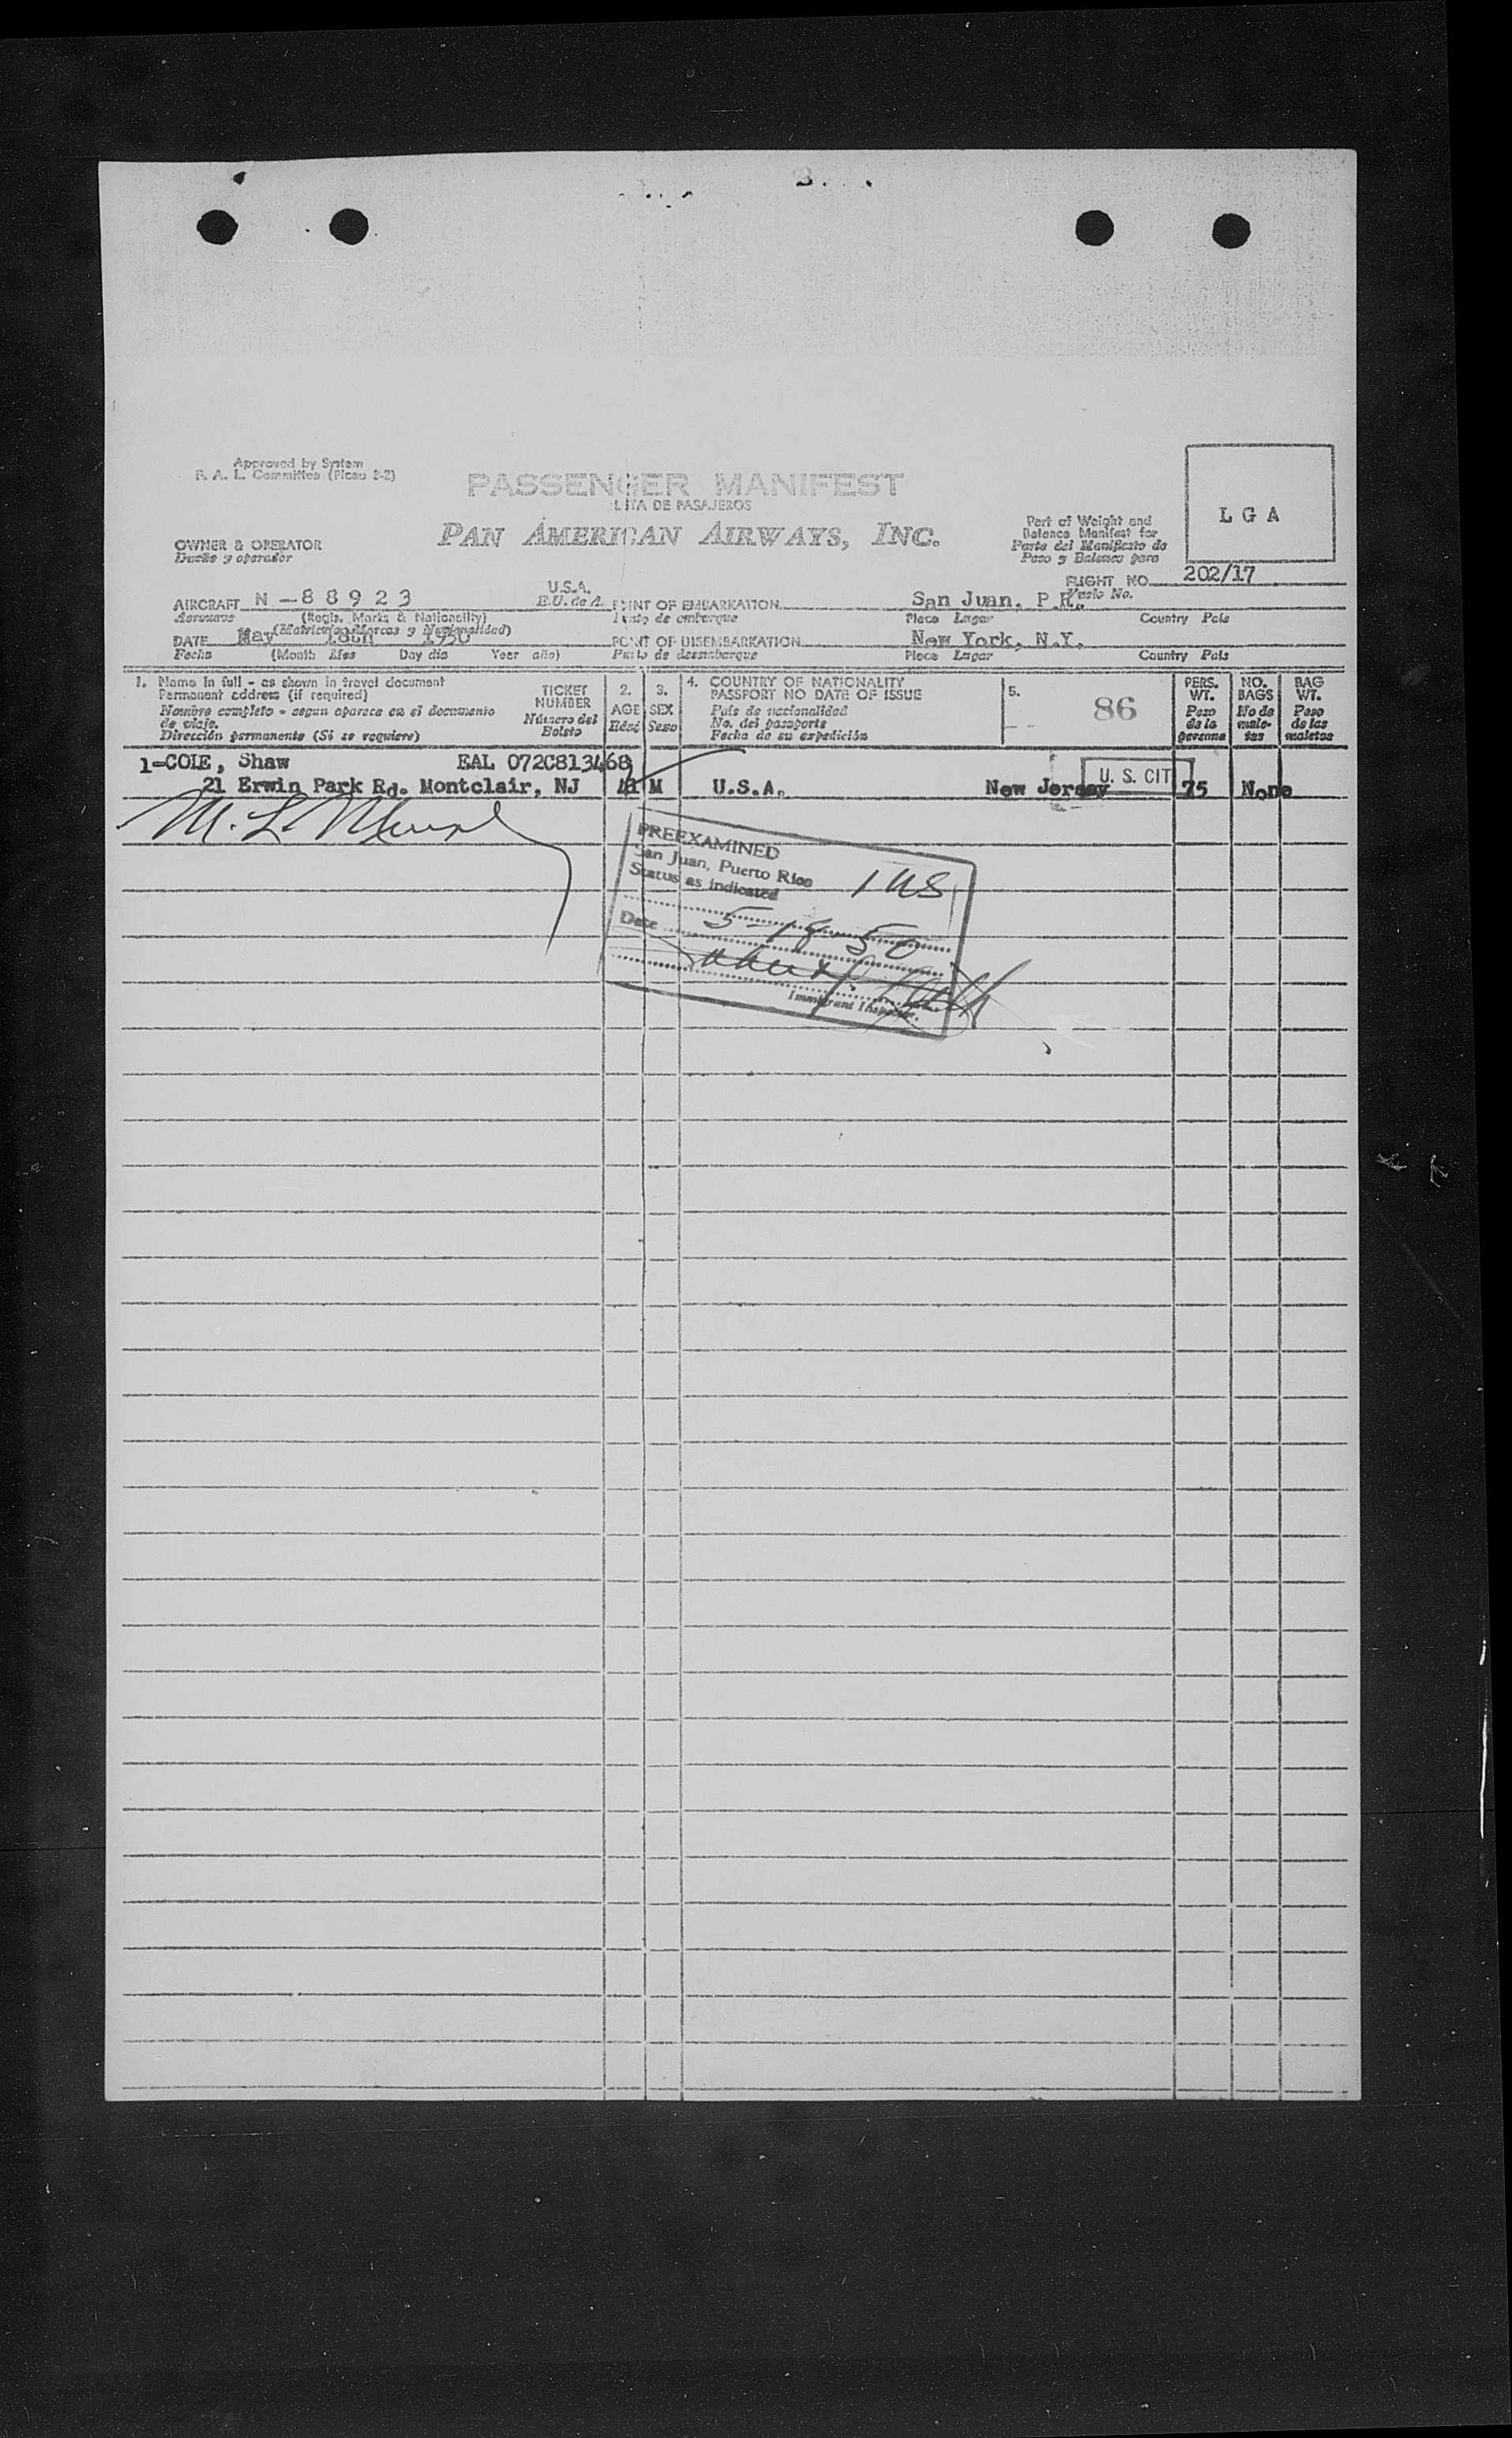 Approved by System
P. A. L. Committee (Picao 2-2)
PASSENGER MANIFEST
LISTA DE PASAJEROS
PAN AMERICAN AIRWAYS, INC.
OWNER & OPERATOR
Dueño y operador
Part of Weight and
Balance Manifest for
Parte del Manifiesto de
Peso y Balance para
L G A
FLIGHT NO. 202/17
Vuelo No.
AIRCRAFT N - 8 8 9 2 3 U.S.A.
Aeronave (Regis. Marks & Nationality) E.U. de A.
(Matrícula, Marcas y Nacionalidad)
POINT OF EMBARKATION San Juan, P.R.
Punto de embarque Place Lugar Country País
DATE May 18th 1950
Fecha (Month Mes Day día Year año)
POINT OF DISEMBARKATION New York, N.Y.
Puerto de desembarque Place Lugar Country País
1. Name in full - as shown in travel document
Permanent address (if required)
Nombre completo - segun aparece en el documento
de viaje.
Dirección permanente (Si se requiere)
TICKET
NUMBER
Número del
Boleto
2.
AGE
Edad
3.
SEX
Sexo
4. COUNTRY OF NATIONALITY
PASSPORT NO DATE OF ISSUE
País de nacionalidad
No. del pasaporte
Fecha de su expedición
5.
86
PERS.
WT.
Peso
de la
persona
NO.
BAGS
No de
male-
tas
BAG
WT.
Peso
de las
maletas
1-COIE, Shaw EAL 072C813468
21 Erwin Park Rd. Montclair, NJ M U.S.A. New Jersey U. S. CIT 75 None
PREEXAMINED
San Juan, Puerto Rico
Status as indicated
1 US
Date 5-18-50
Immigrant Inspector.